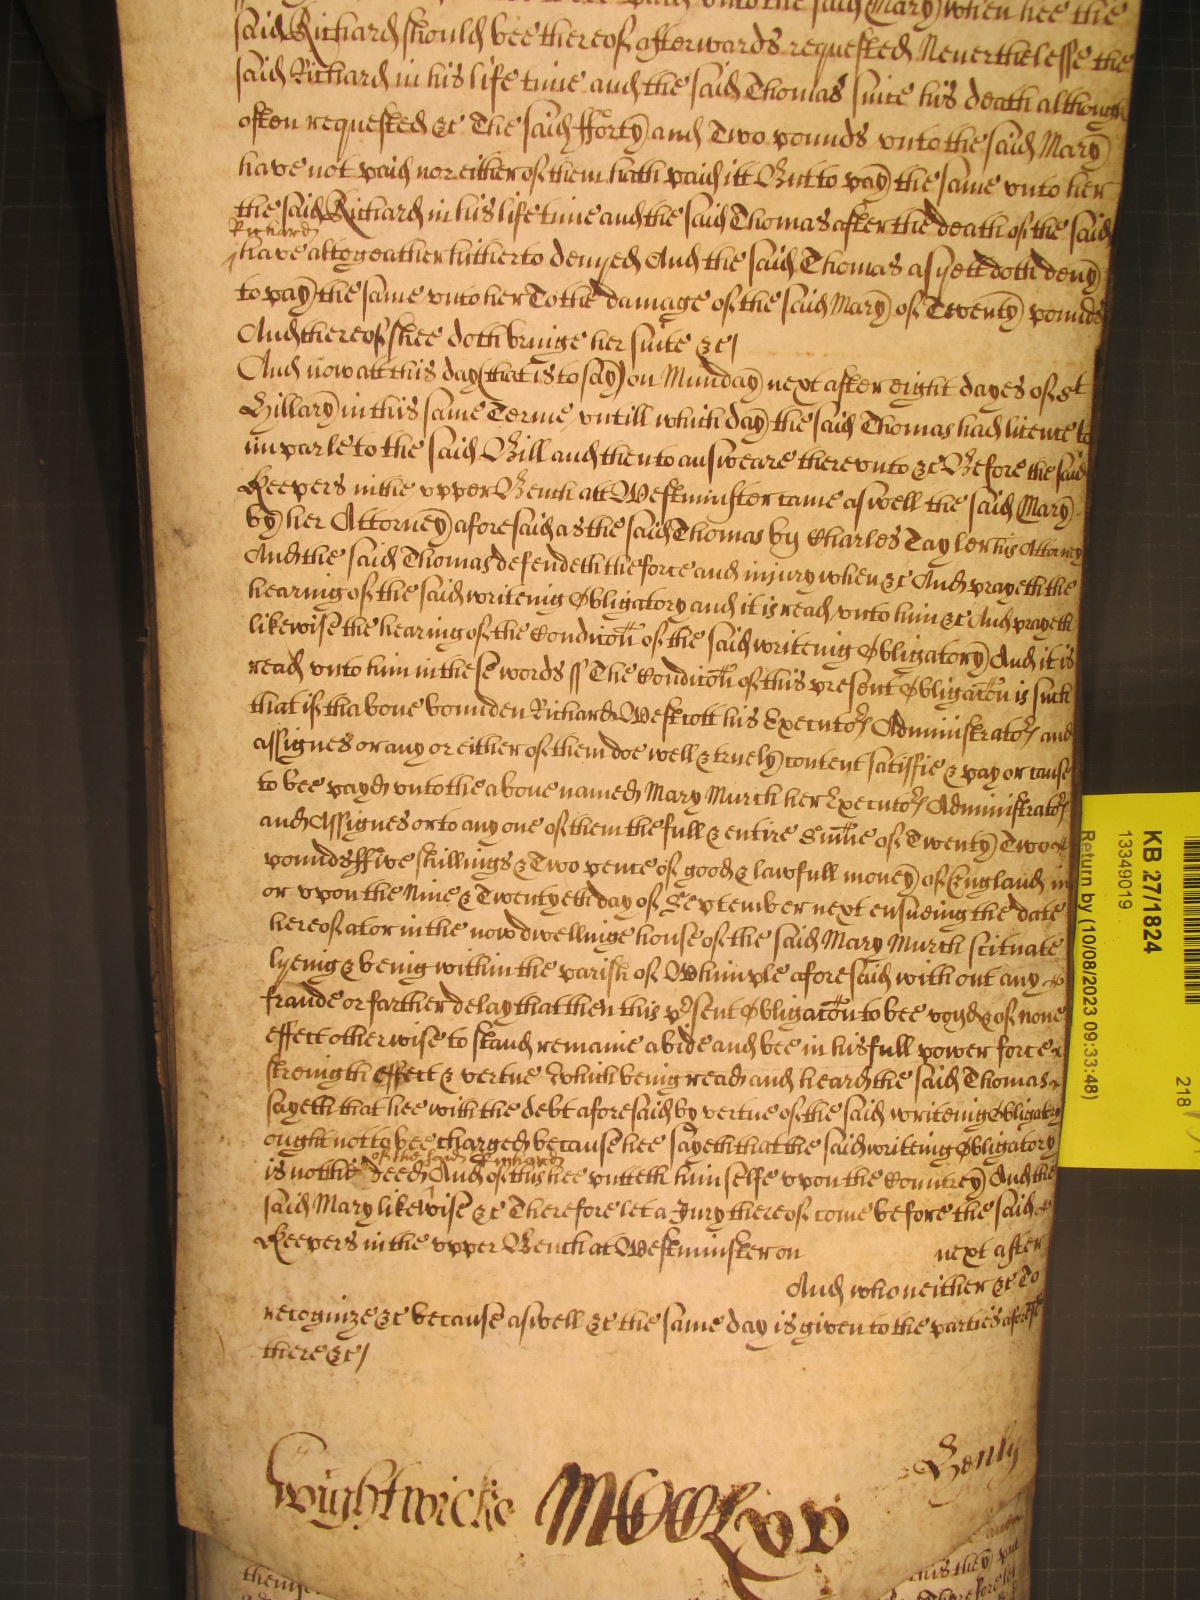 vnto the said Mary when hee the
said Richard should bee thereof afterwards requested Neverthelesse the
said Richard in his life time and the said Thomas since his death although
often requested &c The said fforty and Two pounds vnto the said Mary
have not paid nor either of them hath paid itt But to pay the same vnto her
the said Richard in his life time and the said Thomas after the death of the said
Richard
have altogeather hitherto denyed And the said Thomas as yett doth deny
to pay the same vnto her To the damage of the said Mary of Twenty pounds
And thereof shee doth bringe her suite &c
And now att this day (that is to say) on Munday next after eight dayes of St
Hillary in this same Terme vntill which day the said Thomas had licence to
imparle to the said Bill and then to answeare therevnto &c Before the said
Keepers in the vpper Bench att Westminster came aswell the said Mary
by her Attorney aforesaid as the said Thomas by Charles Taylor his Attorney
And the said Thomas defendeth the force and injury when &c And prayeth the
hearing of the said writeing Obligatory and it is read vnto him &c And prayeth
likewise the hearing of the Condicon of the said writeing Obligatory And it is
read vnto him in these words ss The Condicon of this present Obligacon is such
that if thabove bounden Richard Westcott his Executors Administrators and
assignes or any or either of them doe well & truely content satisfie & pay or cause
to bee payd vnto the above named Mary Murch her Executors Administrators
and Assignes or to any one of them the full & entire Sume of Twenty Two
pounds ffive shillings & Two pence of good & lawfull money of England in
or vpon the Nine & Twentyeth day of September next ensueing the date
hereof at or in the now dwellinge house of the said Mary Murch scituate
lyeing & being within the parish of Whimple aforesaid with out any
fraude or farther delay that then this psent Obligacon to bee voyd & of none
effect otherwise to stand remaine abide and bee in his full power force
strength effect & vertue Which being read and heard the said Thomas
sayeth that hee with the debt aforesaid by vertue of the said writeing Obligatory
ought not to bee charged because hee sayeth that the said writeing Obligatory
of the said Richard
is not the Deed And of this hee putteth himselfe vpon the Countrey And the
said Mary likewise &c Therefore let a Jury thereof come before the said
Keepers in the vpper Bench at Westminster on next after
And who neither &c To
recognize &c because aswell &c the same day is given to the parties aforesd
there &c
Wightwicke MDCLV Henly
KB 27/1824
13349019
Return by (10/08/2023 09:33:48)
218